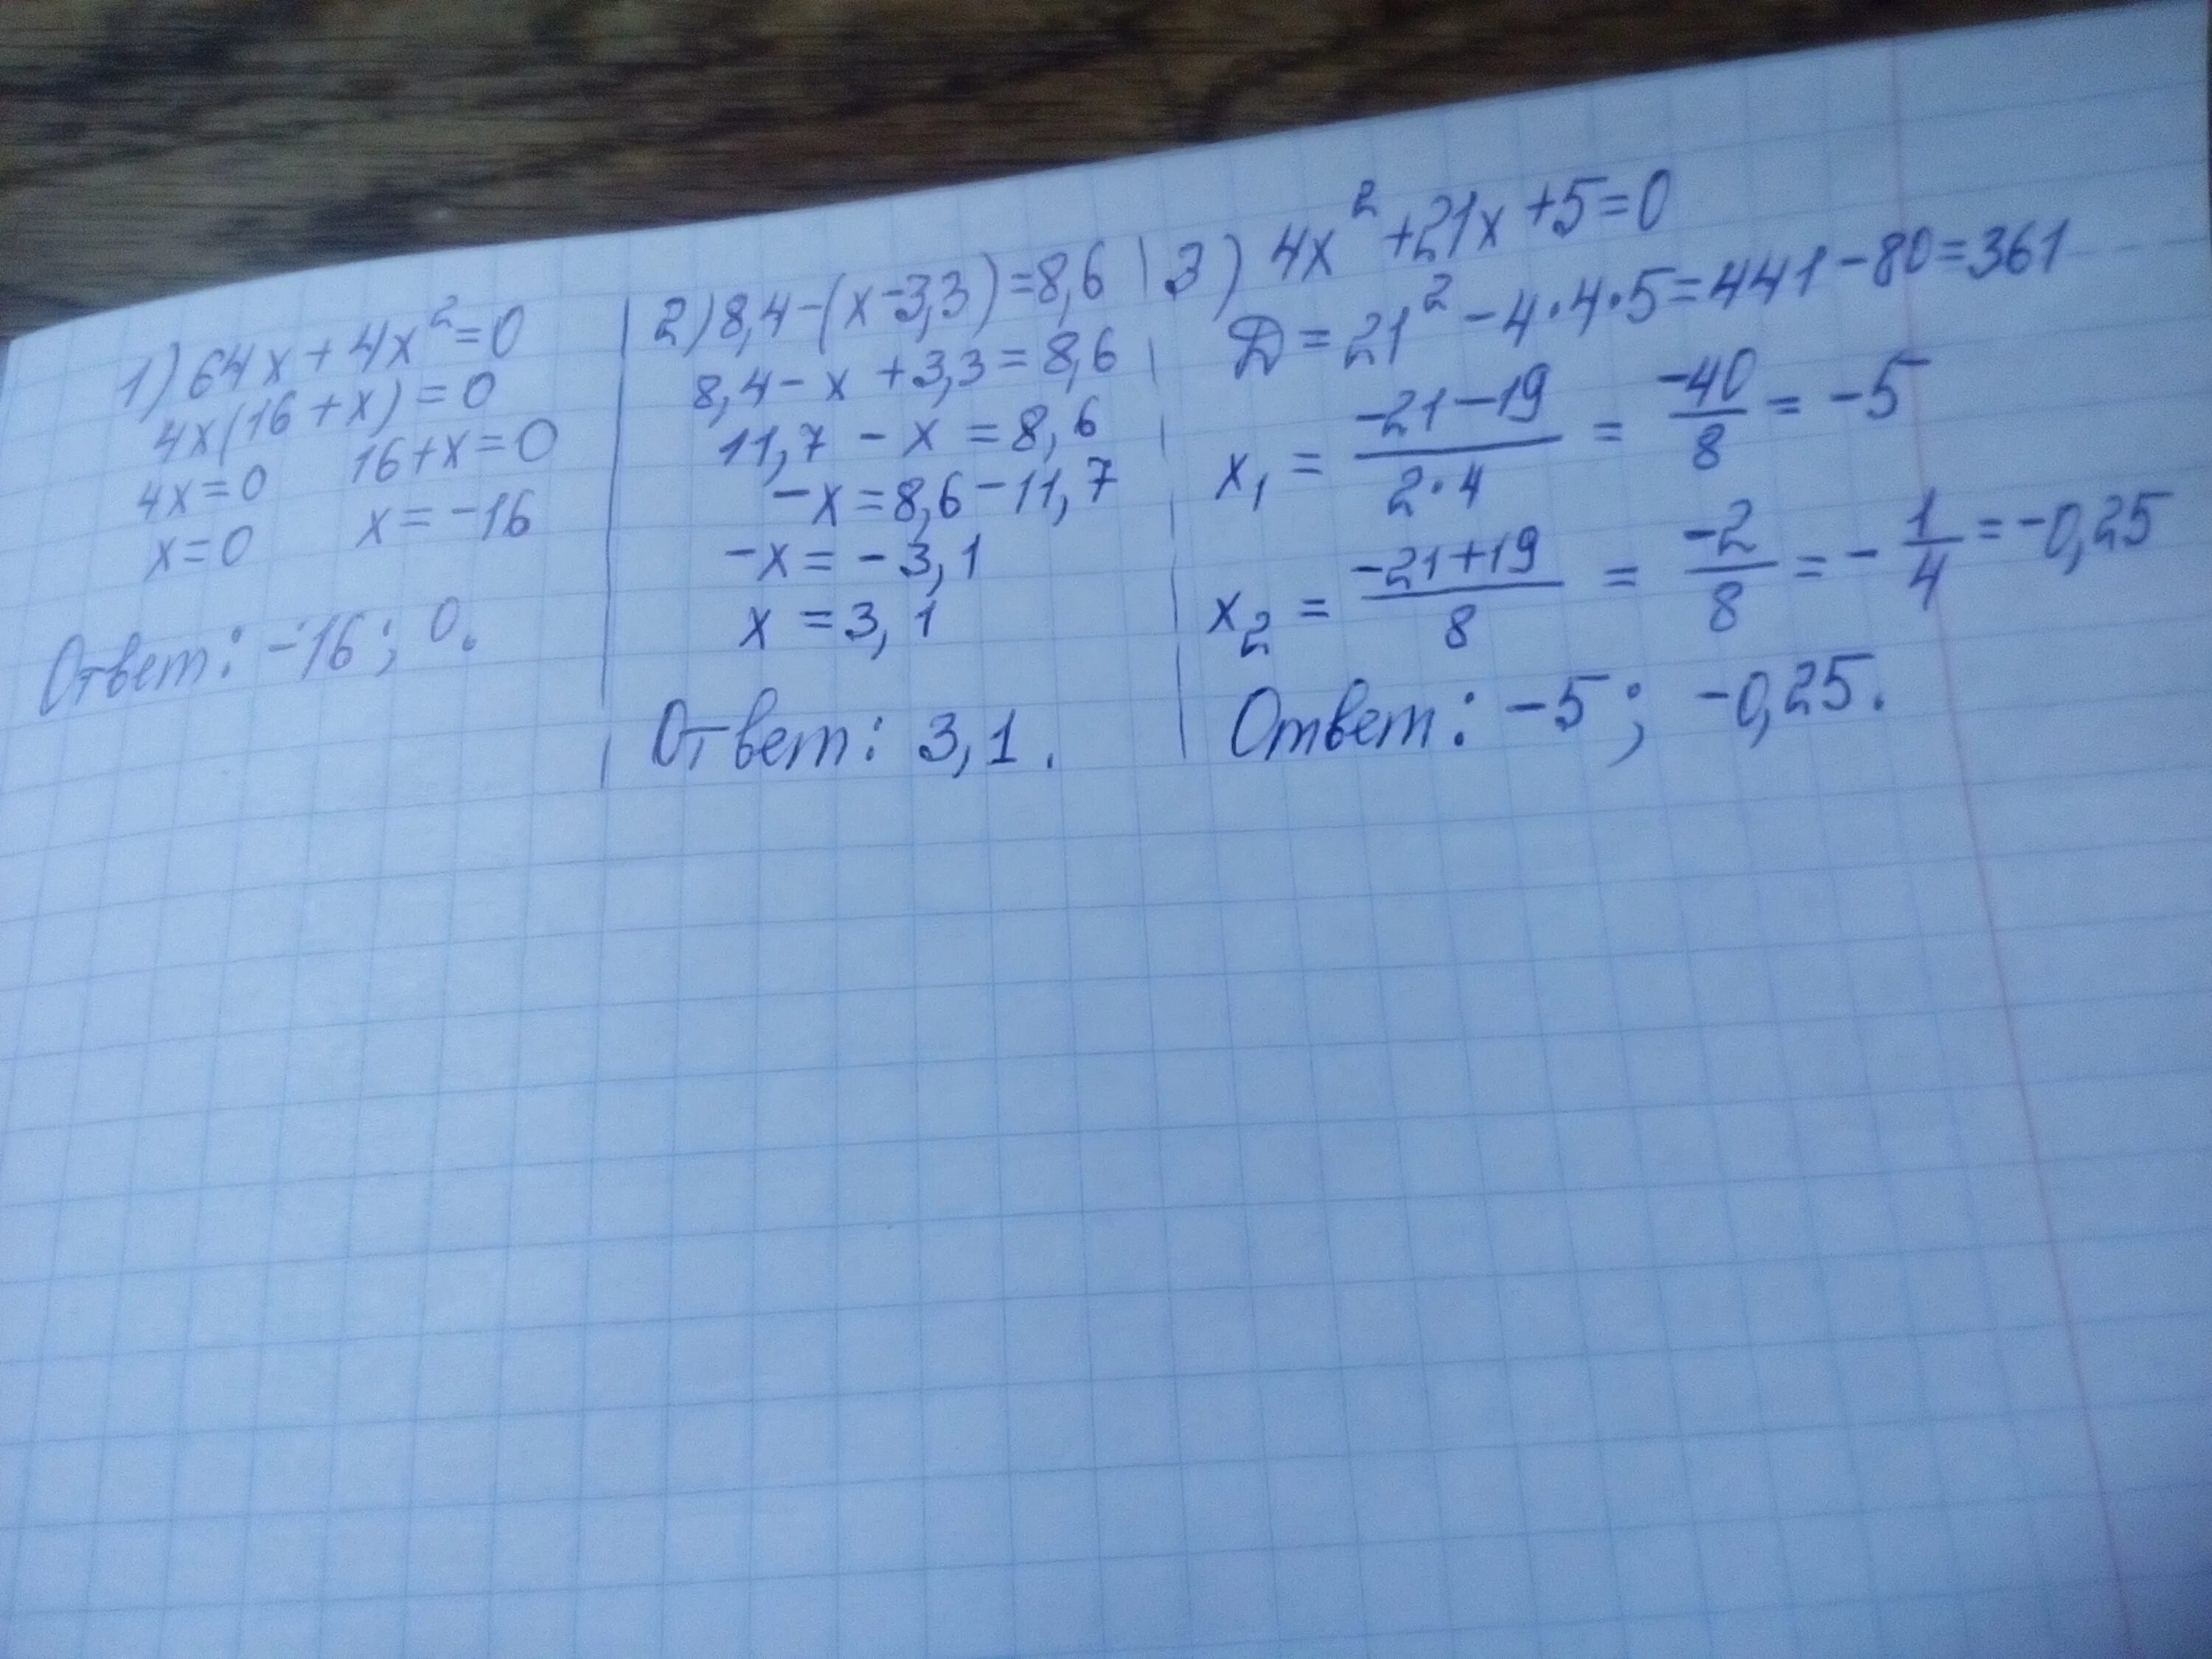 1) 64x + 4x² = 0
4x(16 + x) = 0
4x = 0 16 + x = 0
x = 0 x = -16
Ответ: -16; 0.
2) 8,4 - (x - 3,3) = 8,6
8,4 - x + 3,3 = 8,6
11,7 - x = 8,6
-x = 8,6 - 11,7
-x = -3,1
x = 3,1
Ответ: 3,1.
3) 4x² + 21x + 5 = 0
D = 21² - 4·4·5 = 441 - 80 = 361
x₁ = (-21-19)/(2·4) = -40/8 = -5
x₂ = (-21+19)/8 = -2/8 = -1/4 = -0,25
Ответ: -5; -0,25.